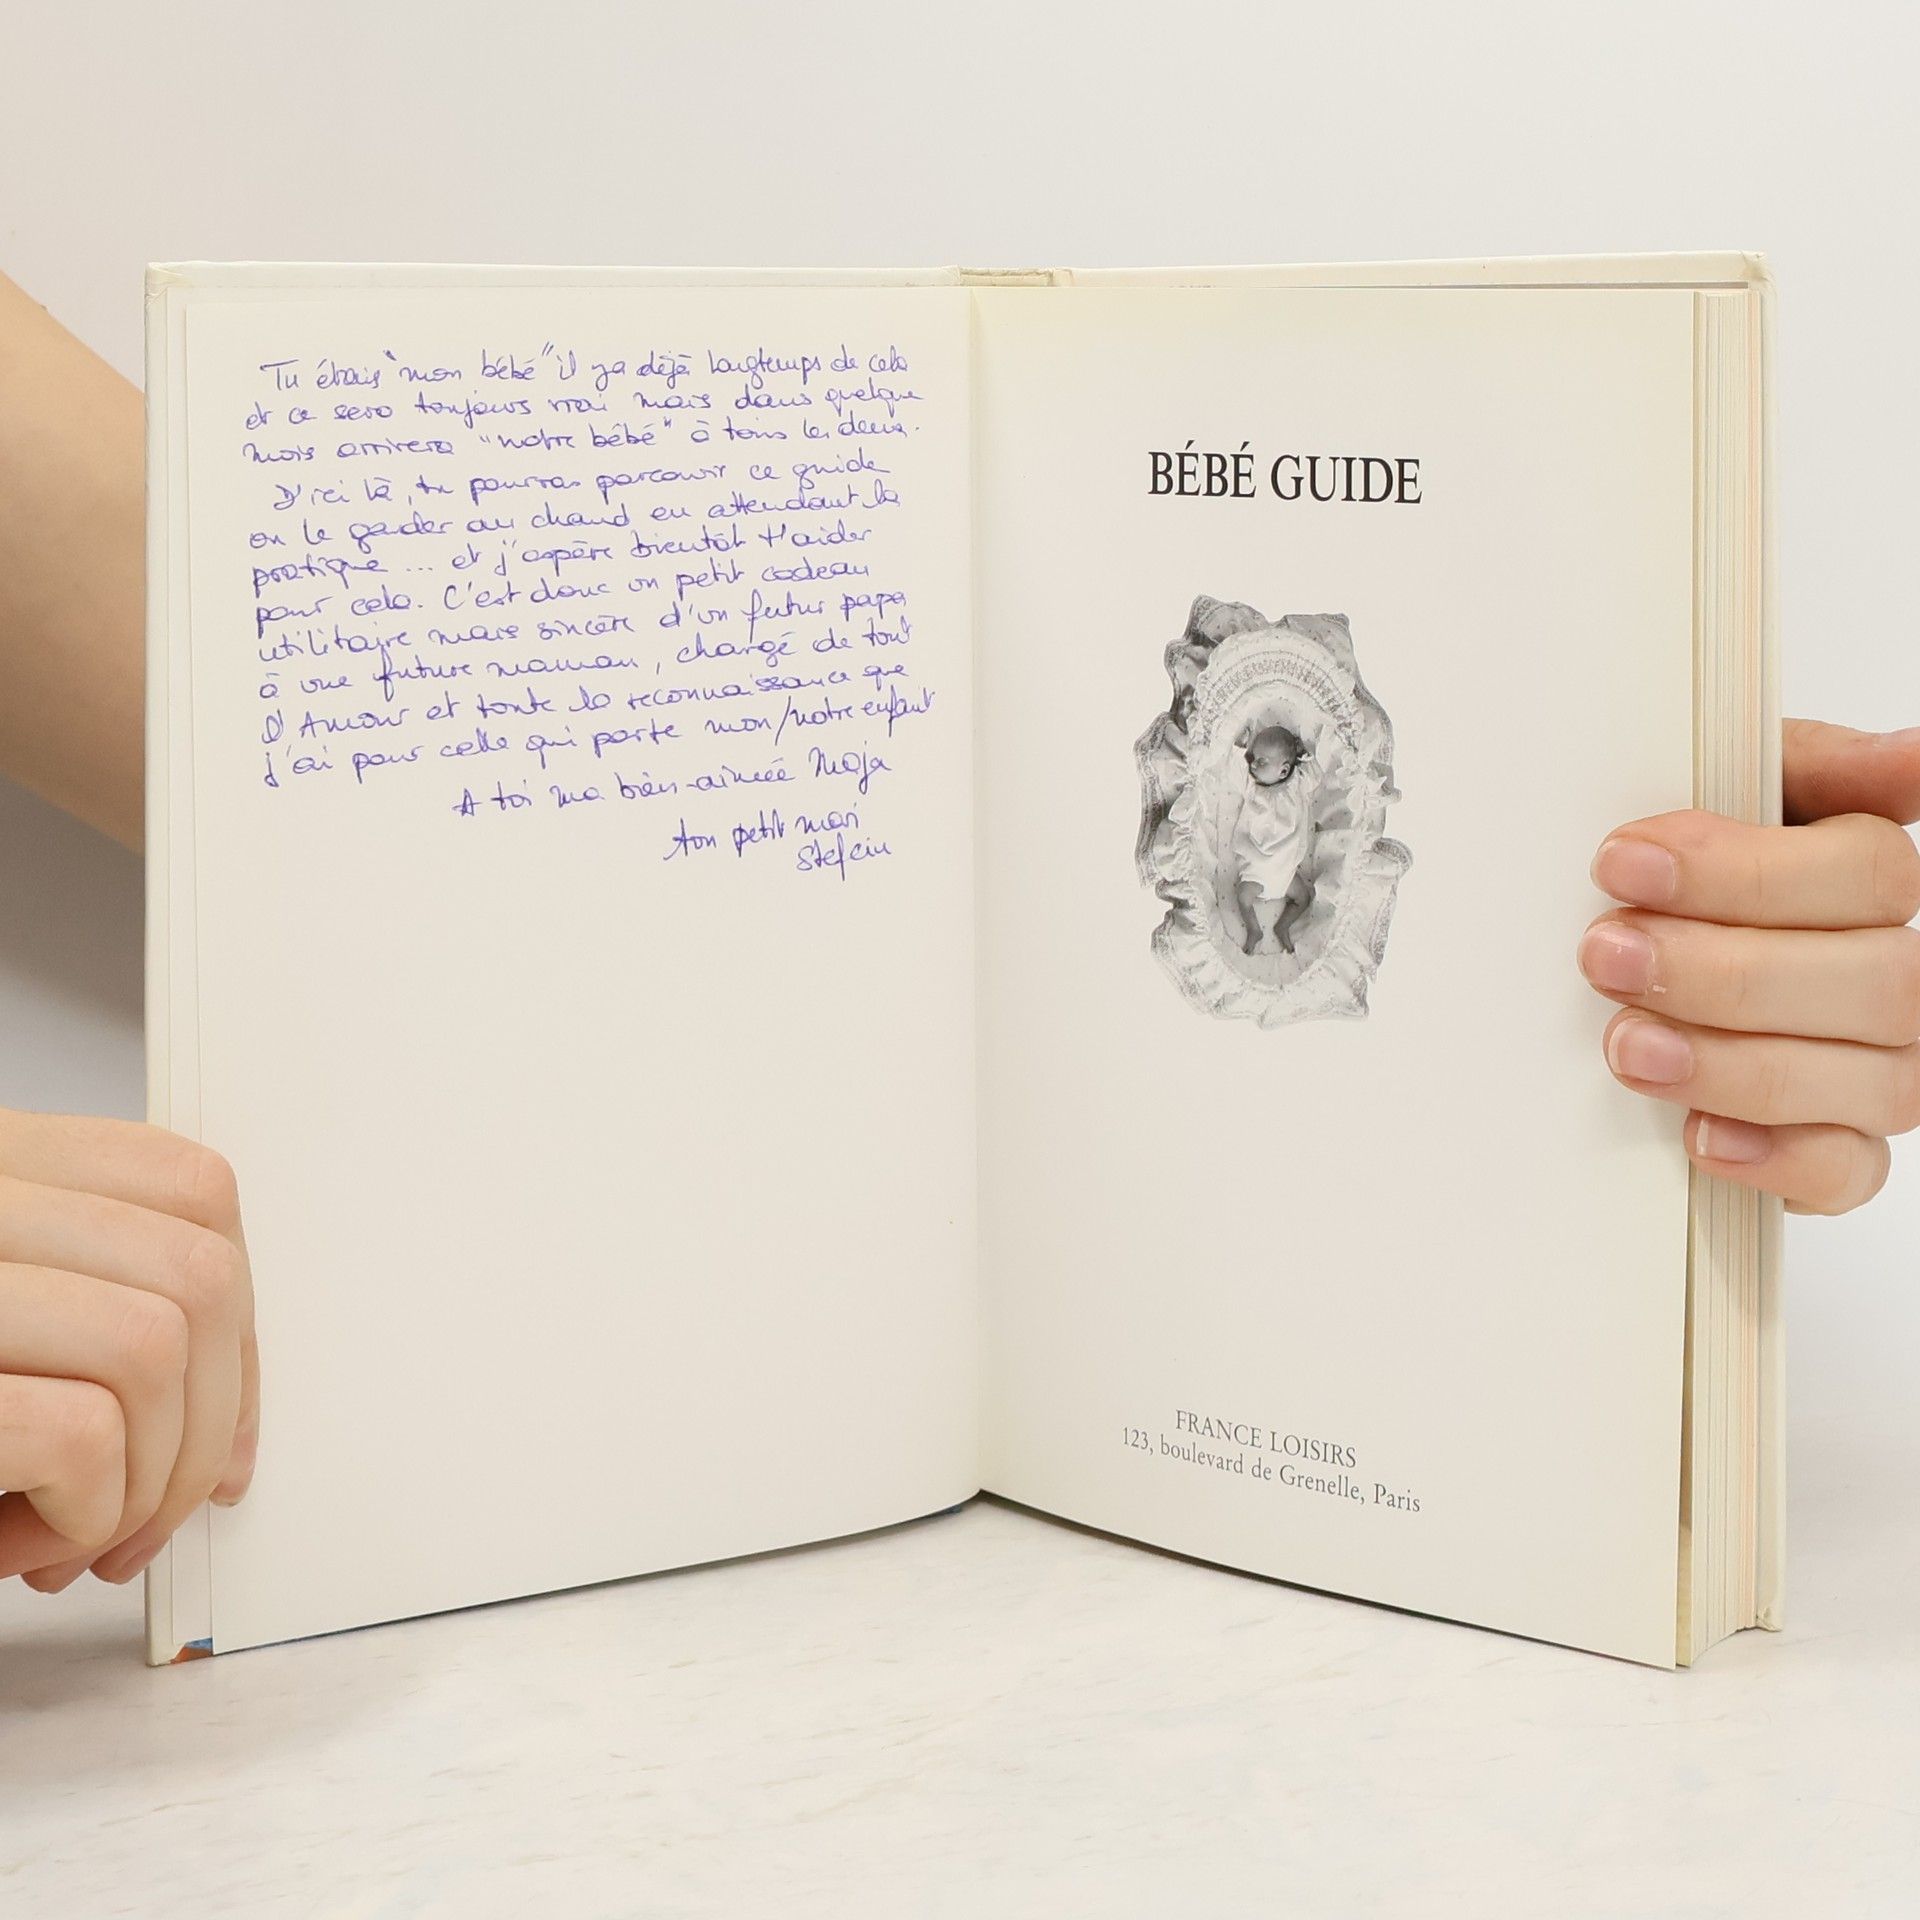 Tu étais "mon bébé" il ya déjà longtemps de cela
et ce sera toujours vrai mais dans quelque
mois arrivera "notre bébé" à tous les deux.
D'ici là, tu pourras parcourir ce guide
ou le garder au chaud en attendant la
pratique ... et j'espère bientôt t'aider
pour cela. C'est donc un petit cadeau
utilitaire mais sincère d'un futur papa
à une future maman, chargé de tout
l'Amour et toute la reconnaissance que
j'ai pour celle qui porte mon/notre enfant
A toi ma bien-aimée Maja
ton petit mari
BÉBÉ GUIDE
FRANCE LOISIRS
123, boulevard de Grenelle, Paris